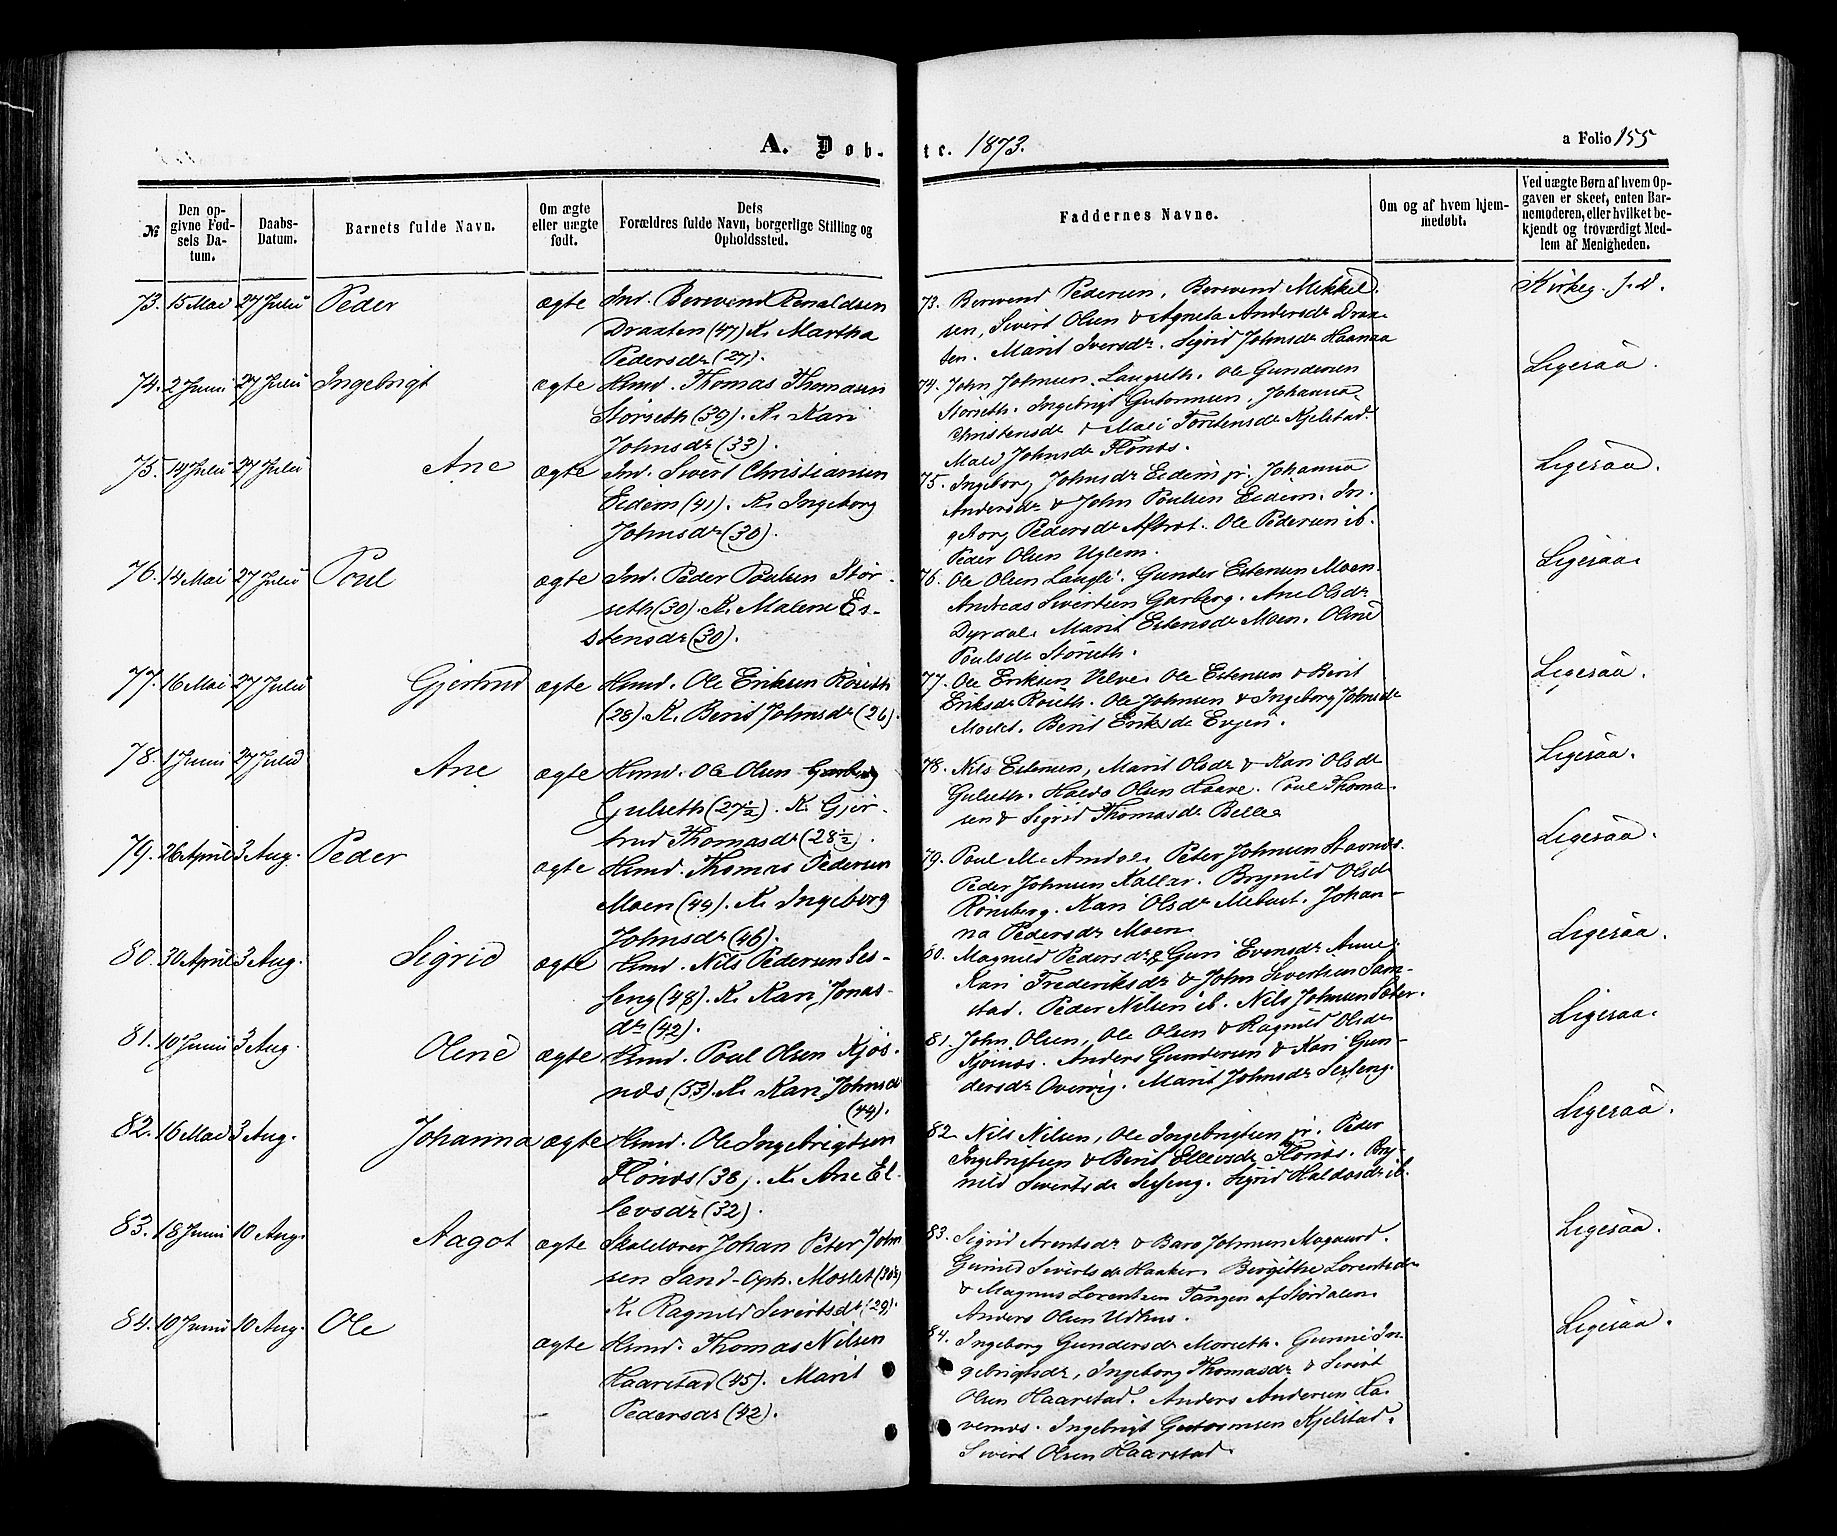 A. Døb-
te. 1873.
a Folio 155
№
Den op-
givne Fød-
sels Da-
tum.
Daabs-
Datum.
Barnets fulde Navn.
Om ægte
eller uægte
født.
Dets
Forældres fulde Navn, borgerlige Stilling og
Opholdssted.
Faddernes Navne.
Om og af hvem hjem-
medøbt.
Ved uægte Børn af hvem Op-
gaven er skeet, enten Bar-
nemoderen, eller hvilket be-
kjendt og troværdigt Med-
lem af Menigheden.
73. 15 Mai 27 Juli Peder ægte Ind. Berevend Renaldsen
Draxten (47) K. Martha
Pedersdr (27).
73. Berevend Pedersen, Berevend Mikkel-
sen, Sivert Olsen & Agneta Andersdr Drax-
ten. Marit Iversdr. Sigrid Johnsdr Haanaa
Kirkeg. s. d.
74. 2 Juni 27 Juli Ingebrigt ægte Hmd. Thomas Thomasen
Størseth (39). K. Kari
Johnsdr (33).
74. John Johnsen Langseth. Ole Gundersen
Størseth. Ingebrigt Guttormsen, Johanna
Christensdr & Mali Torstensdr Kjelstad.
Mali Johnsdr Flönes.
Ligesaa.
75. 14 Juli 27 Juli Ane ægte Ind. Sivert Christiansen
Eidem (41). K. Ingeborg
Johnsdr (30).
75. Ingeborg Johnsdr Eidem jr. Johanna
Andersdr & John Poulsen Eidem. In-
geborg Pedersdr Aftret. Ole Pedersen ib.
Peder Olsen Uglem.
Ligesaa.
76. 14 Mai 27 Juli Poul ægte Ind. Peder Poulsen Stör-
seth (30). K. Malene Es-
stensdr (30).
76. Ole Olsen Langli. Gunder Estensen Moen.
Andreas Sivertsen Garberg. Ane Olsdr
Dyrdal. Marit Estensdr Moen. Oline
Poulsdr Störseth.
Ligesaa.
77. 16 Mai 27 Juli Gjertrud ægte Hmd. Ole Eriksen Röseth
(28). K. Berit Johnsdr (26).
77. Ole Eriksen Velve. Ole Estensen & Berit
Eriksdr Röseth. Ole Johnsen & Ingeborg Johnsdr
Moslet. Berit Eriksdr Evjen.
Ligesaa.
78. 1 Juni 27 Juli Ane ægte Hmd. Ole Olsen Garberg
Gulseth (27½). K. Gjer-
trud Thomasdr (28½).
78. Nils Estensen, Marit Olsdr & Kari Olsdr
Gulseth. Haldo Olsen Haave. Poul Thoma-
sen & Sigrid Thomasdr Belle
Ligesaa.
79. 26 April 3 Aug. Peder ægte Hmd. Thomas Pedersen
Moen (44). K. Ingeborg
Johnsdr (46).
79. Poul M. Amdal. Peter Johnsen Stavnes.
Peder Johnsen Kallar. Brynild Olsdr
Rönsberg. Kari Olsdr Mebust. Johan-
na Pedersdr Moen
Ligesaa.
80. 30 April 3 Aug. Sigrid ægte Hmd. Nils Pedersen Ses-
seng (48). K. Kari Jonas-
dr (42).
80. Magnild Pedersdr & Guri Evensdr Aune,
Kari Frederiksdr & John Sivertsen Sam-
stad. Peder Nilsen ib. Nils Johnsen Sæter.
Ligesaa.
81. 10 Juni 3 Aug. Olene ægte Hmd. Poul Olsen Kjös-
næs (53). K. Kari Johnsdr
(44).
81. John Olsen, Ole Olsen & Ragnild Olsdr
Kjösnæs. Anders Gundersen & Kari Gun-
dersdr Overvig. Marit Johnsdr Sesseng.
Ligesaa.
82. 16 Mai 3 Aug. Johanna ægte Hmd. Ole Ingebrigtsen
Flönæs (38). K. Ane El-
levsdr (32).
82. Nils Nilsen, Ole Ingebrigtsen jr. Peder
Ingebrigtsen & Berit Ellevsdr Flönæs. Bry-
nild Sivertsdr Sesseng. Sigrid Haldosdr ib.
Ligesaa.
83. 18 Juni 10 Aug. Aagot ægte Skolelærer Johan Peter John-
sen Sand - Oph. Moslet (30½)
K. Ragnild Sivertsdr (29).
83. Sigrid Arentsdr & Baro Johnsen Mogaard.
Gunild Sivertsdr Haaker. Birgithe Lorentsdr
& Magnus Lorentsen Tangen af Stördalen.
Anders Olsen Udhus.
Ligesaa.
84. 10 Juni 10 Aug. Ole ægte Hmd. Thomas Nilsen
Haarstad (45). Marit
Pedersdr (42).
84. Ingeborg Gundersdr Morseth. Gunni In-
gebrigtsdr, Ingeborg Thomasdr & Sivert
Olsen Haarstad. Anders Andersen Ha-
vernæs. Ingebrigt Guttormsen Kjelstad.
Sivert Olsen Haarstad.
Ligesaa.